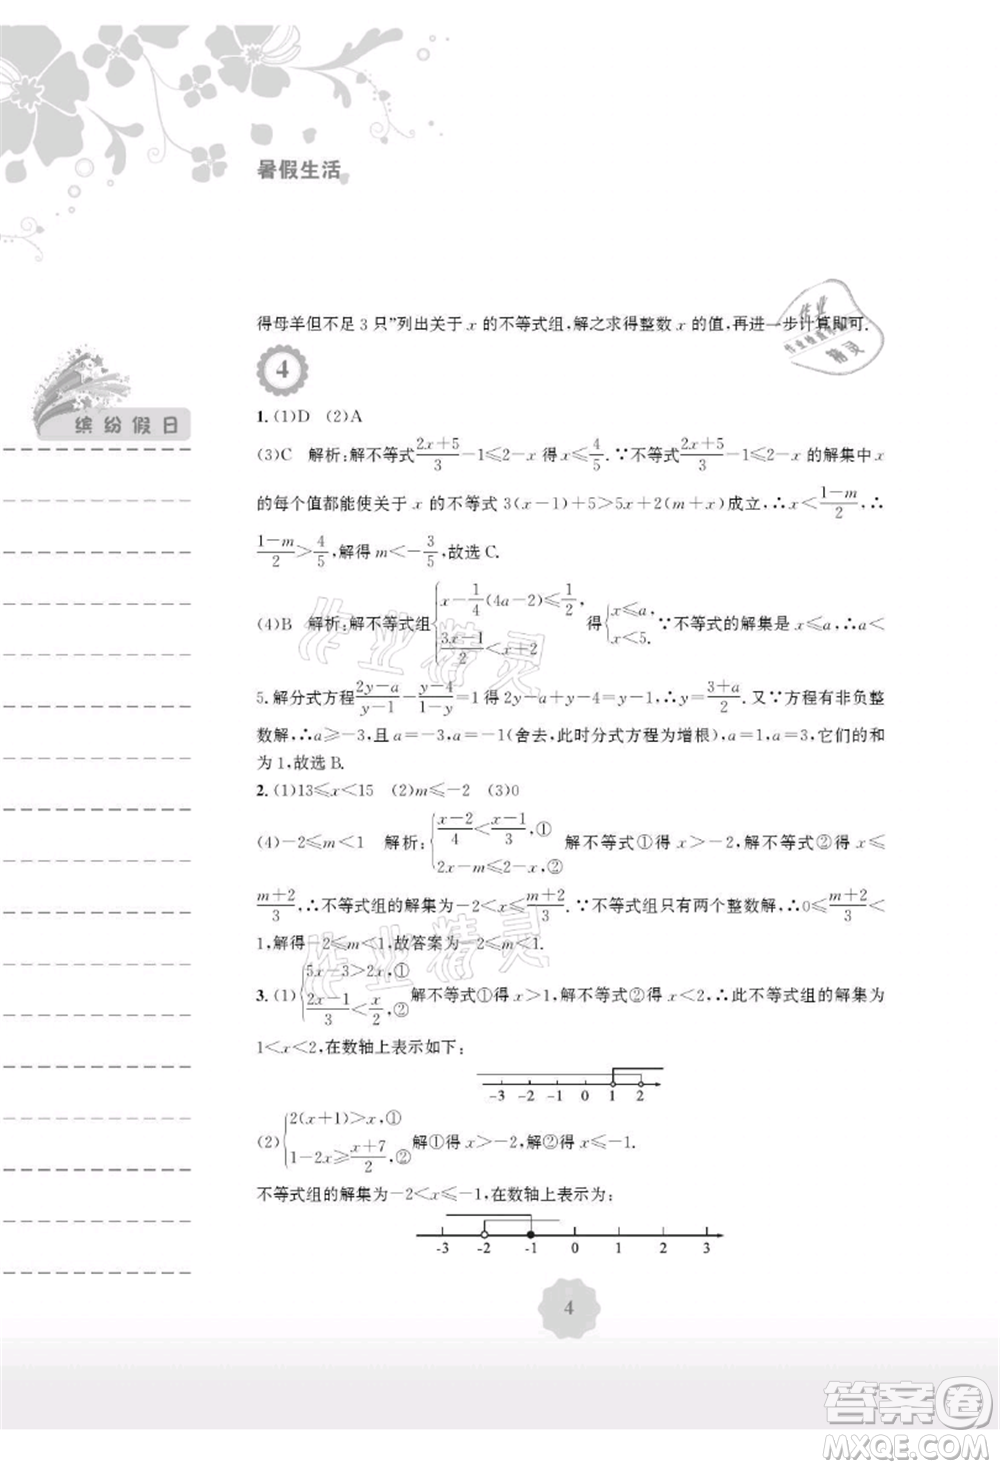 暑假生活
得母羊但不足 3 只”列出关于 x 的不等式组,解之求得整数 x 的值,再进一步计算即可.
作业
作业检查小帮手
精灵
4
缤纷假日
1. (1)D (2)A
(3)C 解析:解不等式(2x+5)/3−1≤2−x 得 x≤4/5. ∵不等式(2x+5)/3−1≤2−x 的解集中 x
的每个值都能使关于 x 的不等式 3(x−1)+5>5x+2(m+x)成立,∴x<(1−m)/2,∴
(1−m)/2>4/5,解得 m<−3/5,故选 C.
(4)B 解析:解不等式组{x−1/4(4a−2)≤1/2, (3x−1)/2<x+2 得{x≤a, x<5. ∵不等式的解集是 x≤a,∴a<
5.解分式方程(2y−a)/(y−1)−(y−4)/(1−y)=1 得 2y−a+y−4=y−1,∴y=(3+a)/2. 又∵方程有非负整
数解,∴a≥−3,且 a=−3,a=−1(舍去,此时分式方程为增根),a=1,a=3,它们的和
为 1,故选 B.
2. (1)13≤x<15 (2)m≤−2 (3)0
(4)−2≤m<1 解析:{(x−2)/4<(x−1)/3,① 2x−m≤2−x,② 解不等式①得 x>−2,解不等式②得 x≤
(m+2)/3,∴不等式组的解集为−2<x≤(m+2)/3. ∵不等式组只有两个整数解,∴0≤(m+2)/3<
1,解得−2≤m<1,故答案为−2≤m<1.
3. (1){5x−3>2x,① (2x−1)/3<x/2,② 解不等式①得 x>1,解不等式②得 x<2,∴此不等式组的解集为
1<x<2,在数轴上表示如下:
-3 -2 -1 0 1 2
(2){2(x+1)>x,① 1−2x≥(x+7)/2,② 解①得 x>−2,解②得 x≤−1.
不等式组的解集为−2<x≤−1,在数轴上表示为:
-3 -2 -1 0 1 2 3
4
作业精灵
作业精灵
答案圈
MXQE.COM